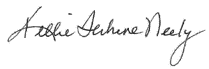 Kellie Terhune Neely